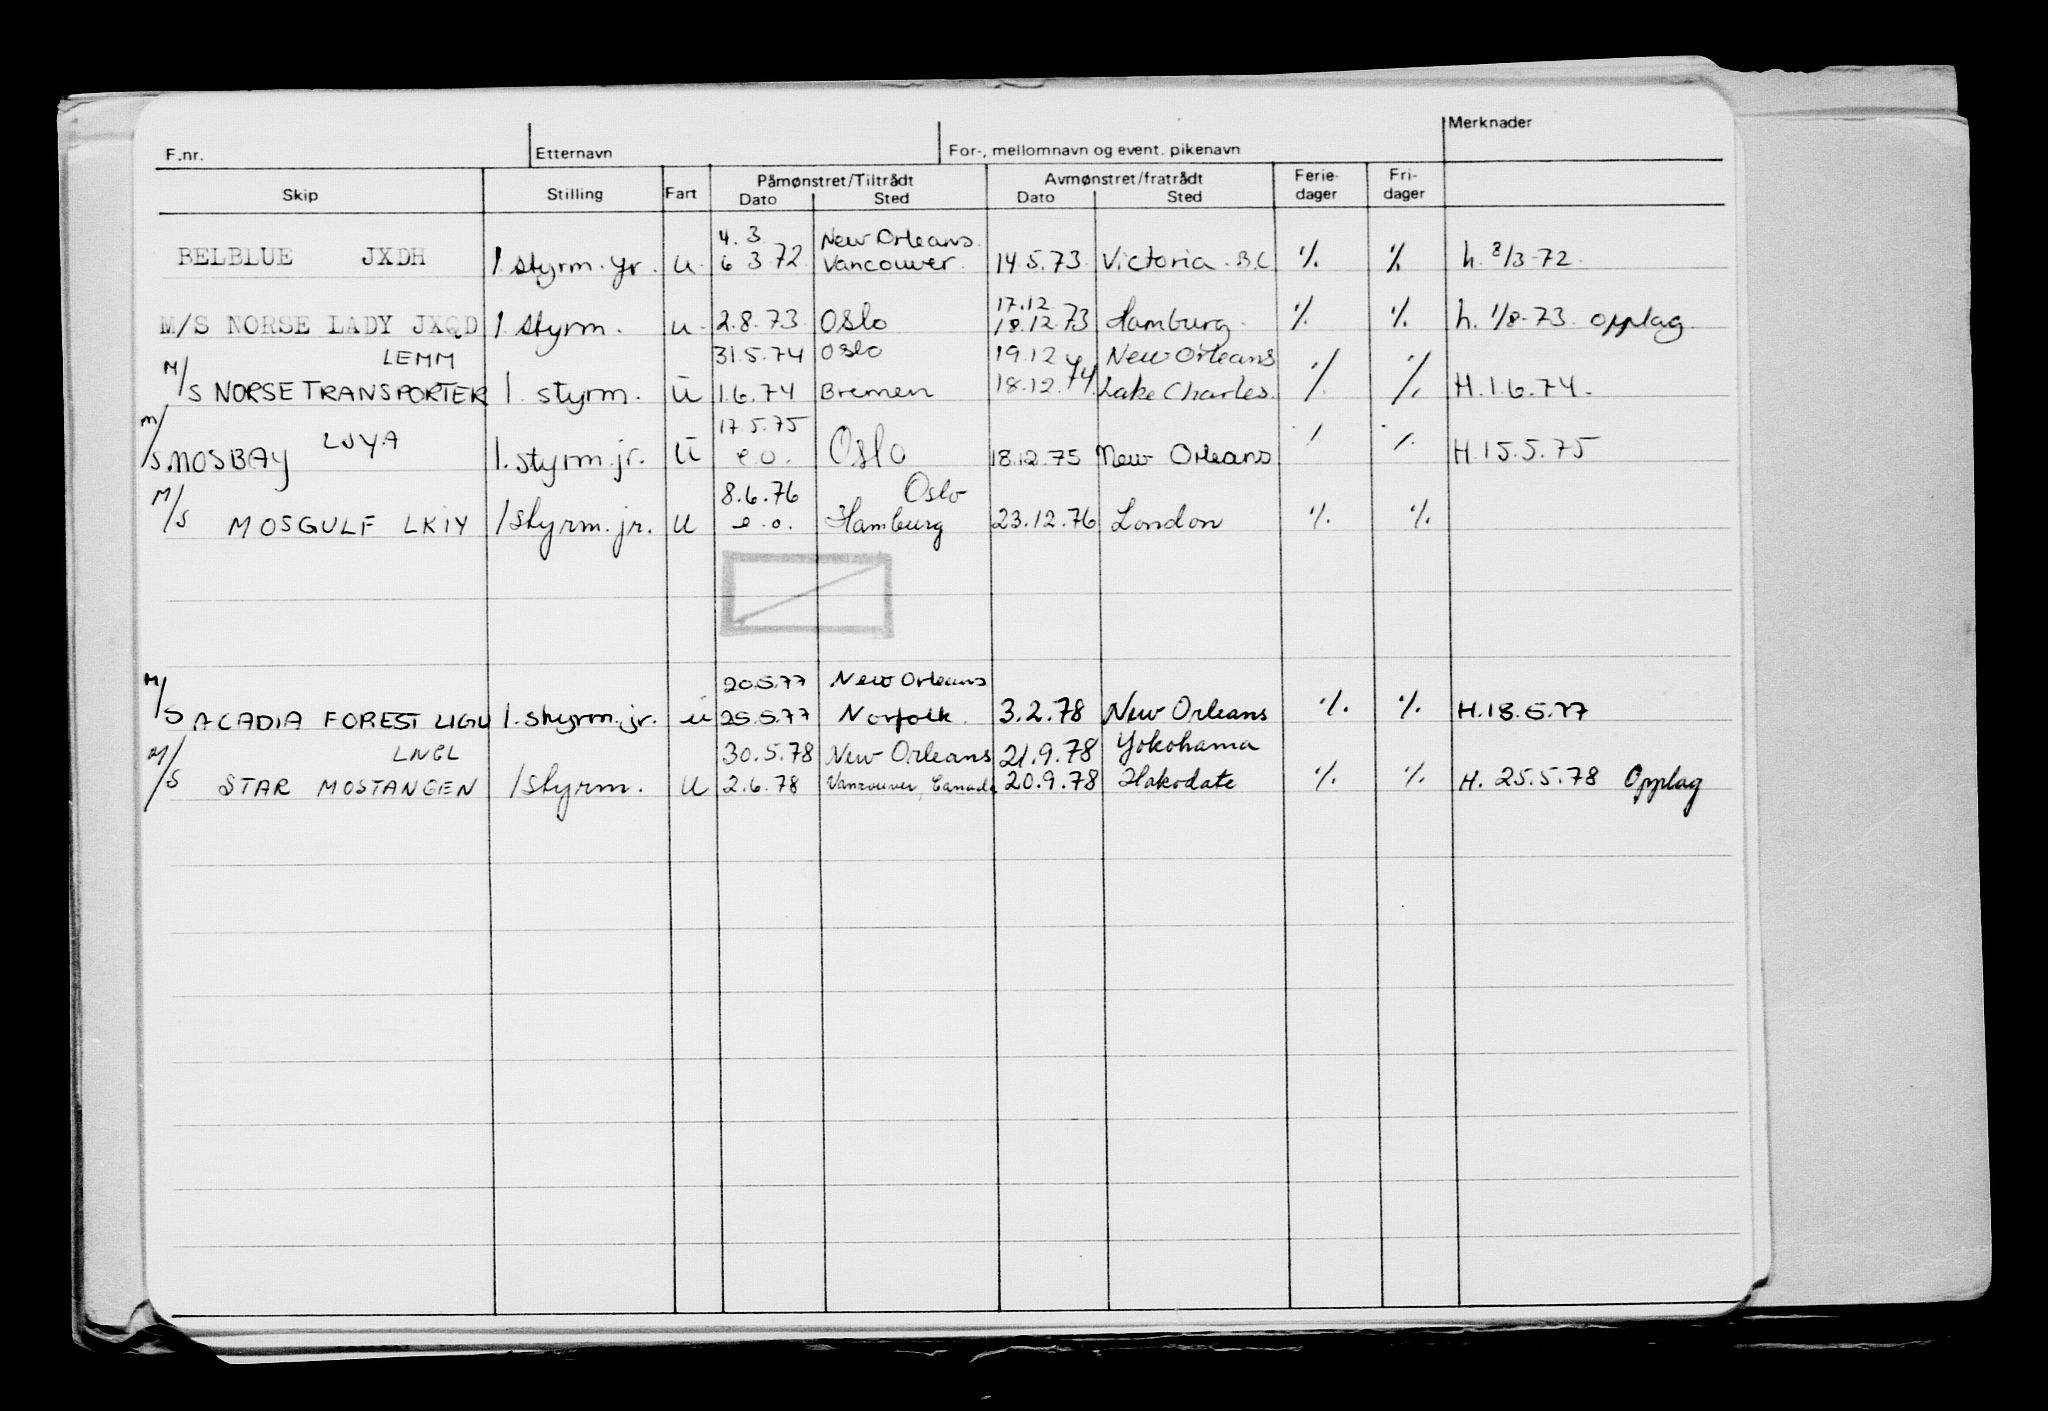 F.nr. Etternavn For-, mellomnavn og event. pikenavn Merknader
Skip Stilling Fart Påmønstret/Tiltrådt Avmønstret/fratrådt Ferie- Fri-
Dato Sted Dato Sted dager dager
4.3 New Orleans.
BELBLUE JXDH 1 styrm. yr. u. 6 3 72 Vancouver. 14.5.73 Victoria. B.C ./. ./. h. 8/3-72.
17.12.
M/S NORSE LADY JXQD 1 styrm. u. 2.8.73 Oslo 18.12.73 Hamburg. ./. ./. h. 1/8-73. opplag.
LEMM 31.5.74 Oslo 19.12 New Orleans
M/S NORSE TRANSPORTER 1. styrm. u 1.6.74 Bremen 18.12.74 Lake Charles. ./. ./. H.1.6.74.
LJYA 17.5.75
M/S MOSBAY 1. styrm. jr. u e.o. Oslo 18.12.75 New Orleans ./. ./. H.15.5.75
8.6.76 Oslo
M/S MOSGULF LKIY 1 styrm. jr. u e.o. Hamburg 23.12.76 London ./. ./.
20.5.77 New Orleans
M/S ACADIA FOREST LIGU 1. styrm. jr. u 25.5.77 Norfolk. 3.2.78 New Orleans ./. ./. H.18.5.77
LNGL 30.5.78 New Orleans 21.9.78 Yokohama
M/S STAR MOSTANGEN 1 styrm. u 2.6.78 Vancouver, Canada 20.9.78 Hakodate ./. ./. H. 25.5.78 Opplag